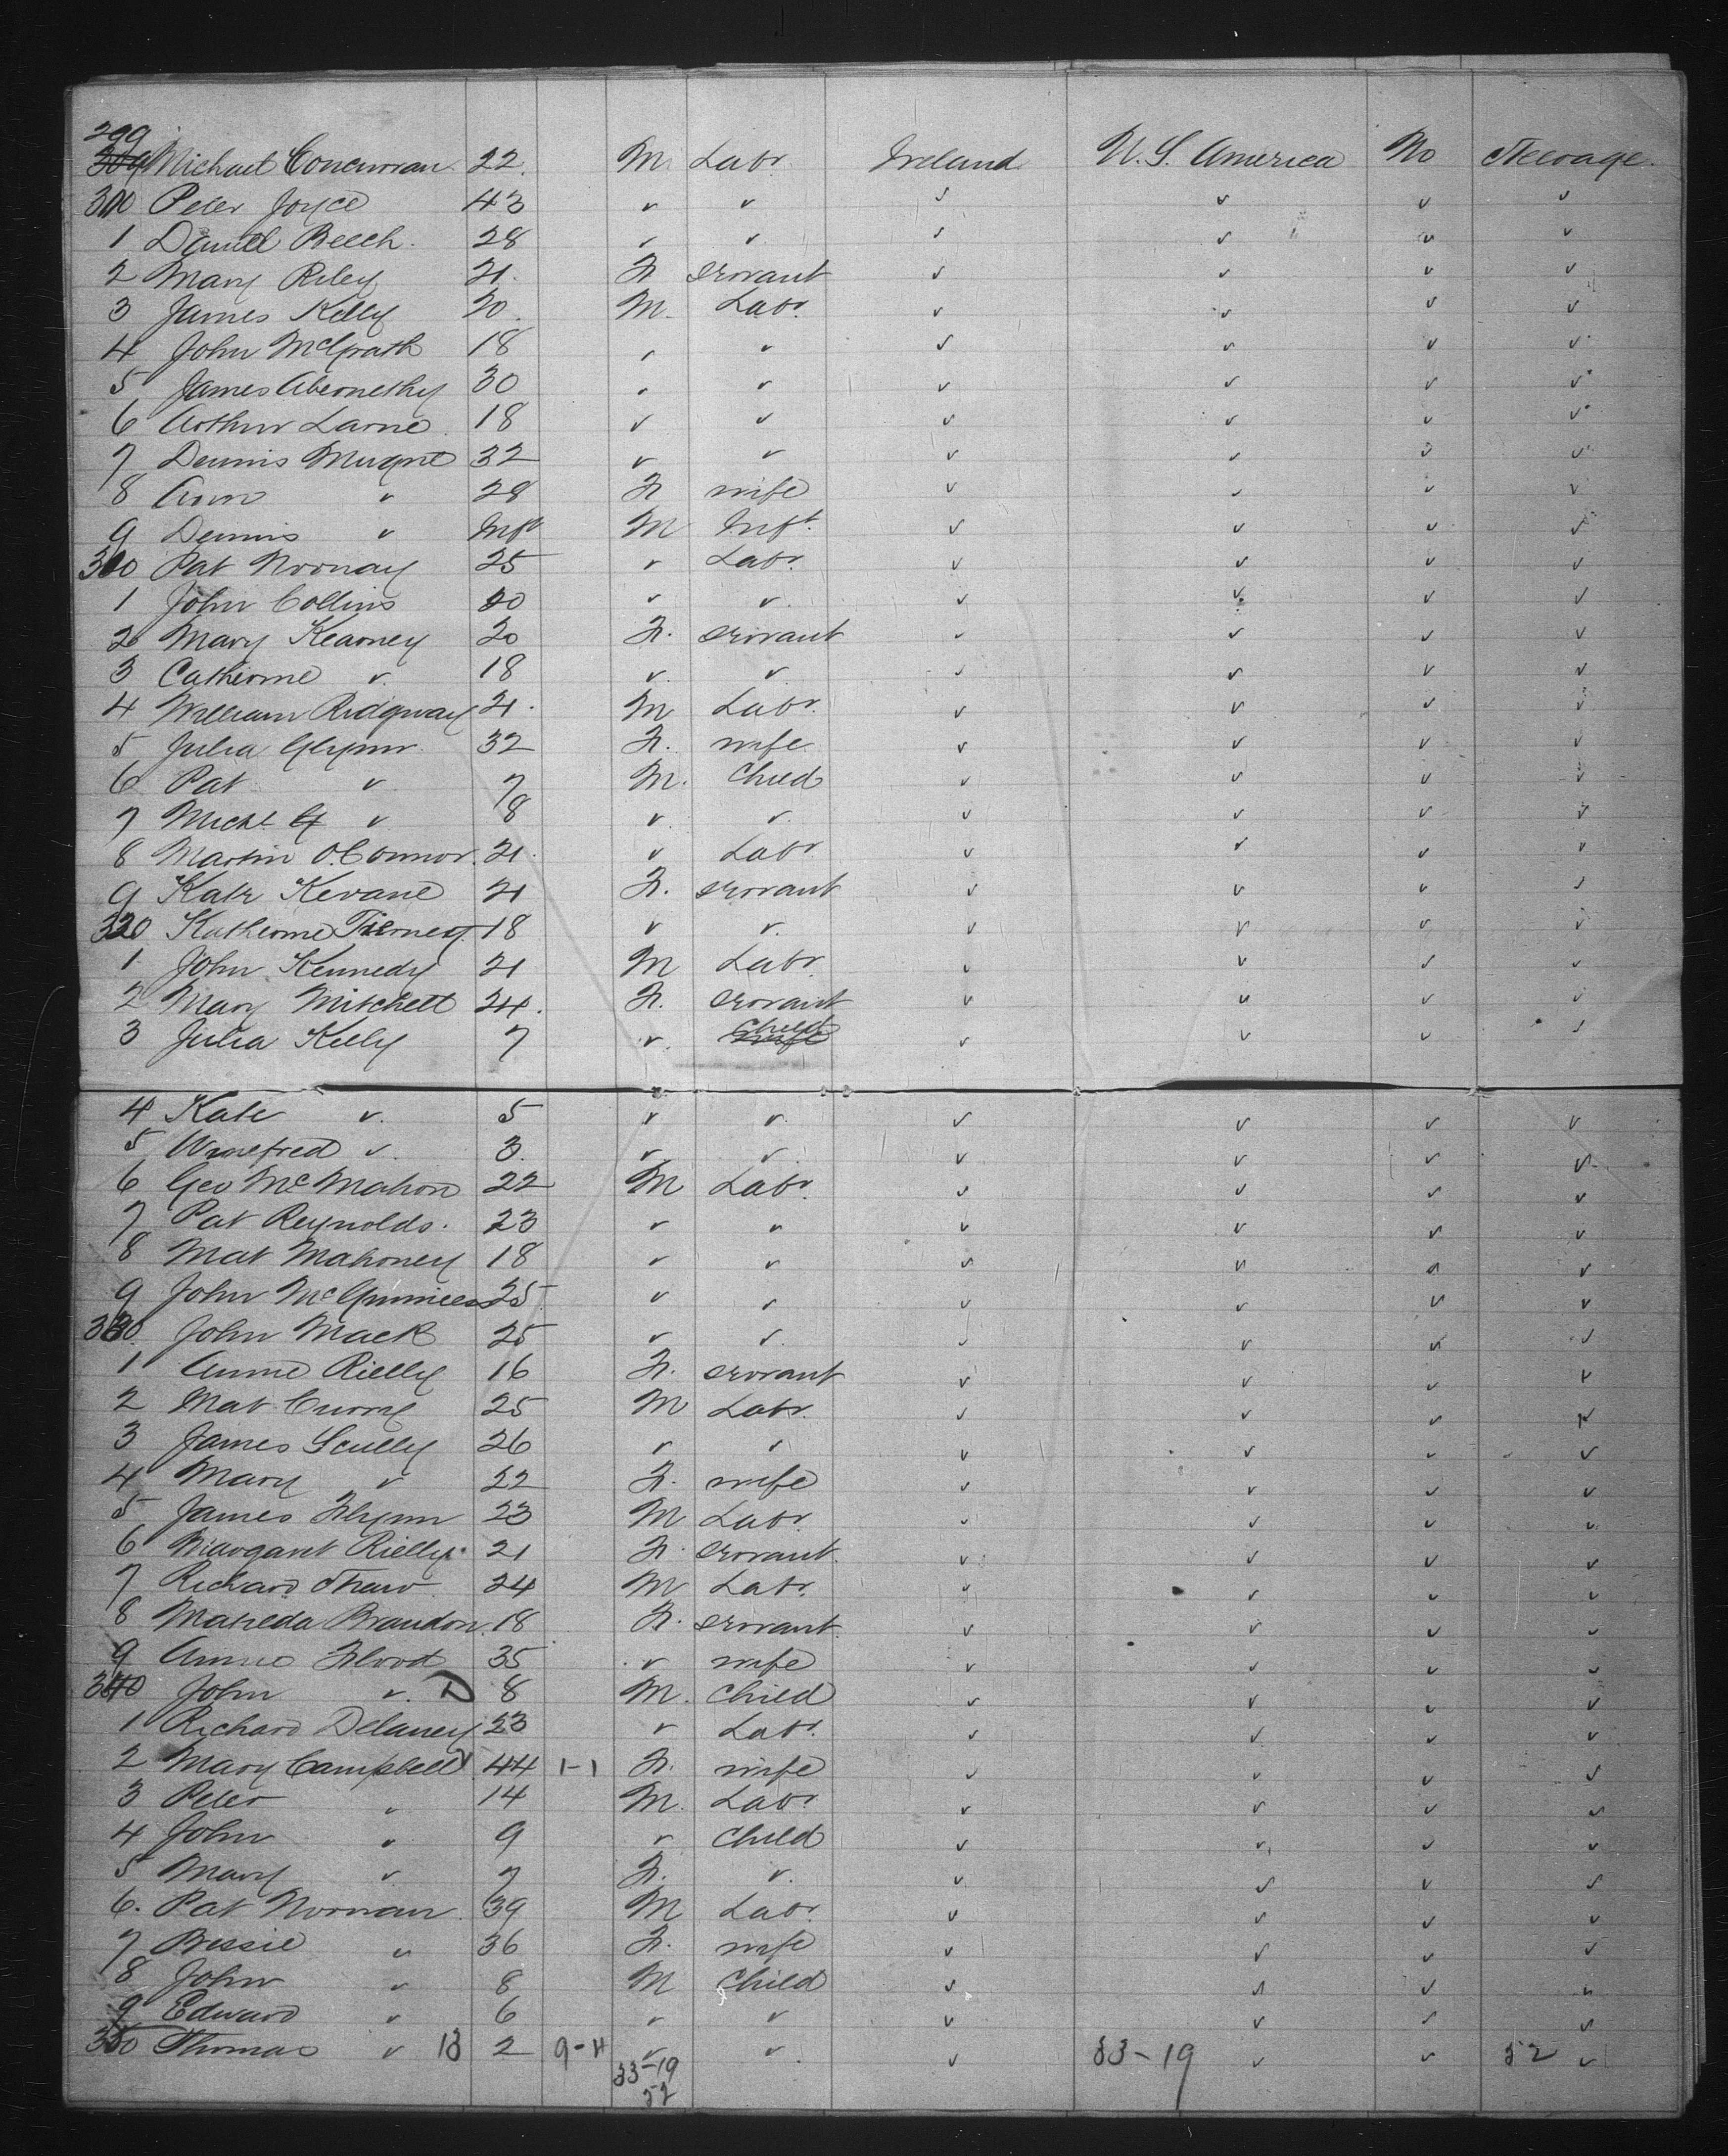 299
309 Michael Concurran 22. M Labr. Ireland U. S. America No Steerage.
300 Peter Joyce 43 " " " " " "
1 Daniel Beech. 28 " " " " " "
2 Mary Riley 21. F. Servant " " " "
3 James Kelly 20. M. Labr. " " " "
4 John McGrath 18 " " " " " "
5 James Abernethy 30 " " " " " "
6 Arthur Larne 18 " " " " " "
7 Dennis 32 " " " " " "
8 Ann " 28 F wife " " " "
9 Dennis " Inft M Inft. " " " "
310 Pat Noonay 25 " Labr. " " " "
1 John Collins 20 " " " " " "
2 Mary Kearney 20 F. Servant " " " "
3 Catherine " 18 " " " " " "
4 William Ridgway 21. M Labr. " " " "
5 Julia Glynn 32 F. wife " " " "
6 Pat " 7 M. Child " " " "
7 Michl " 8 " " " " " "
8 Martin O'Connor. 21. " Labr " " " "
9 Kate Kevane 21 F. Servant " " " "
320 Katherine Tierney 18 " " " " " "
1 John Kennedy 21 M Labr. " " " "
2 Mary Mitchell 24. F. Servant " " " "
3 Julia Kelly 7 " Child wife " " " "
4 Kate " 5 " " " " " "
5 Winefred " 3. " " " " " "
6 Geo McMahon 22 M Labr. " " " "
7 Pat Reynolds. 23 " " " " " "
8 Mat Mahoney 18 " " " " " "
9 John McGuinness 25. " " " " " "
330. John Mack 25 " " " " " "
1 Annie Rielly 16 F. Servant " " " "
2 Mat Curry 25 M Labr. " " " "
3 James Scully 26 " " " " " "
4 Mary " 22 F. wife " " " "
5 James Flynn 23 M Labr. " " " "
6 Margaret Rielly. 21 F. Servant. " " " "
7 Richard Shaw 24 M Labr. " " " "
8 Matilda Brandon. 18 F. Servant. " " " "
9 Annie Flood 35 " wife " " " "
340 John " D 8 M. Child " " " "
1 Richard Delaney 23 " Labr. " " " "
2 Mary Campbell 44 1-1 F. wife " " " "
3 Peter " 14 M. Labr. " " " "
4 John " 9 " Child " " " "
5 Mary " 7 F. " " " " "
6. Pat Noonan 39 M Labr. " " " "
7 Bessie " 36 F. wife " " " "
8 John " 8 M Child " " " "
9 Edward " 6 " " " " " "
350 Thomas " 13 2 9-11 " " " 33-19 " " 52 "
33-19
52